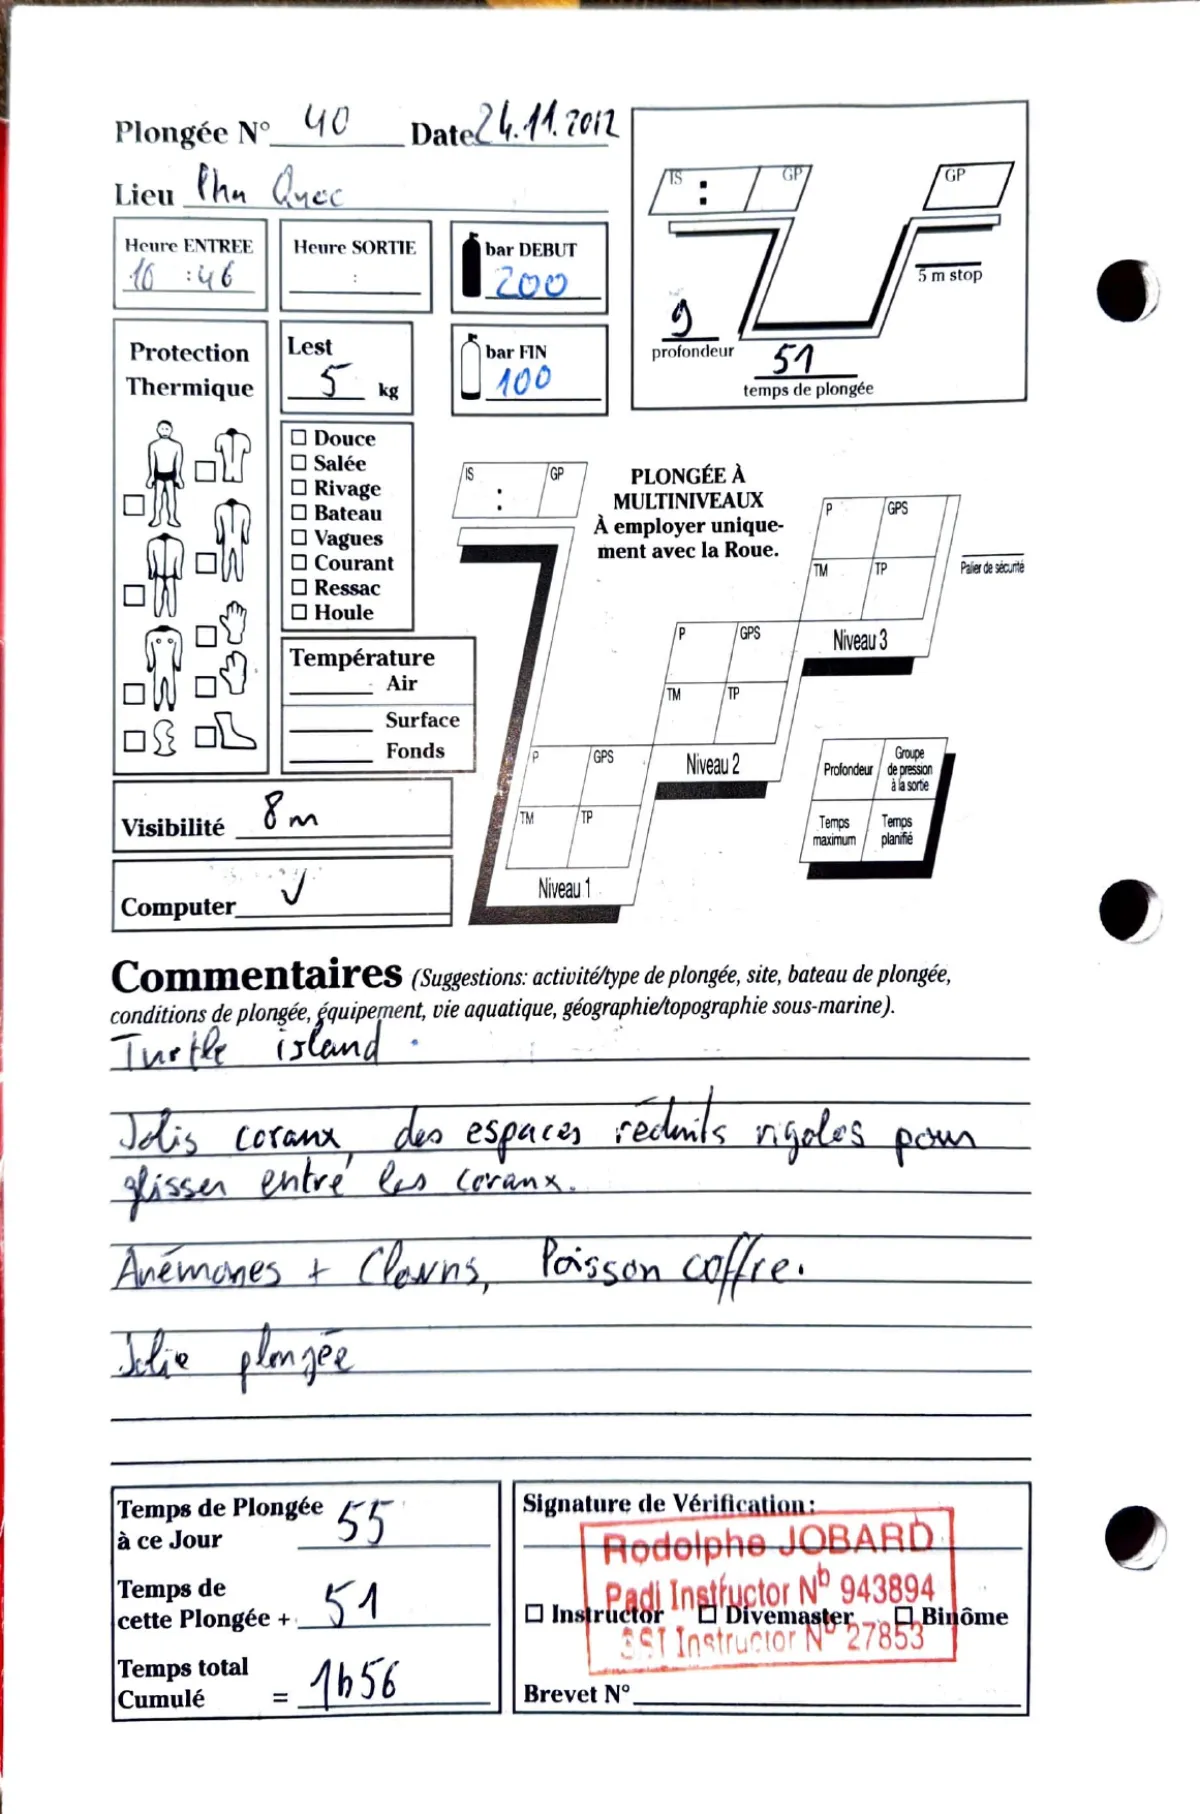 Plongée N° 40 Date 24.11.2012
Lieu Phu Quoc
IS : GP
GP
5 m stop
9
profondeur
51
temps de plongée
Heure ENTREE
10 :46
Heure SORTIE
:
bar DEBUT
200
Protection
Thermique
Lest
5 kg
bar FIN
100
Douce
Salée
Rivage
Bateau
Vagues
Courant
Ressac
Houle
Température
Air
Surface
Fonds
IS : GP
PLONGÉE À
MULTINIVEAUX
À employer unique-
ment avec la Roue.
P GPS
TM TP
Palier de sécurité
Niveau 3
P GPS
TM TP
Niveau 2
P GPS
TM TP
Niveau 1
Profondeur
Groupe
de pression
à la sortie
Temps
maximum
Temps
planifié
Visibilité 8m
Computer ✓
Commentaires (Suggestions: activité/type de plongée, site, bateau de plongée,
conditions de plongée, équipement, vie aquatique, géographie/topographie sous-marine).
Turtle island
Jolis coraux, des espaces réduits rigolos pour
glisser entre les coraux.
Anémones + Clowns, Poisson coffre.
Jolie plongée
Temps de Plongée
à ce Jour 55
Temps de
cette Plongée + 51
Temps total
Cumulé = 1h56
Signature de Vérification:
Rodolphe JOBARD
Padi Instructor N° 943894
Instructor Divemaster Binôme
SSI Instructor N° 27853
Brevet N°